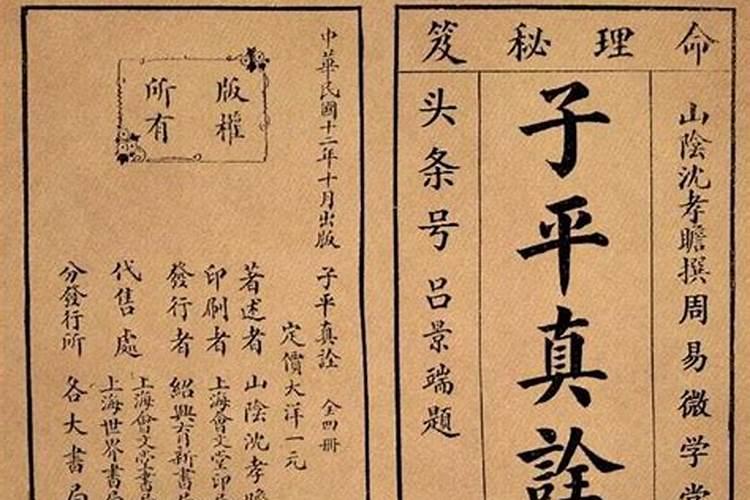 命理秘笈
山陰沈孝瞻撰周易微学堂
子平真詮
头条号吕景端题
中華民國十二年十月出版
版權
所有
子平真詮 全四冊
定價大洋一元
著述者 山陰沈孝瞻
印刷者 上海會文堂印
發行者 紹興育新書
代售處 上海會文堂書
上海世界書局
分發行所 各大書局